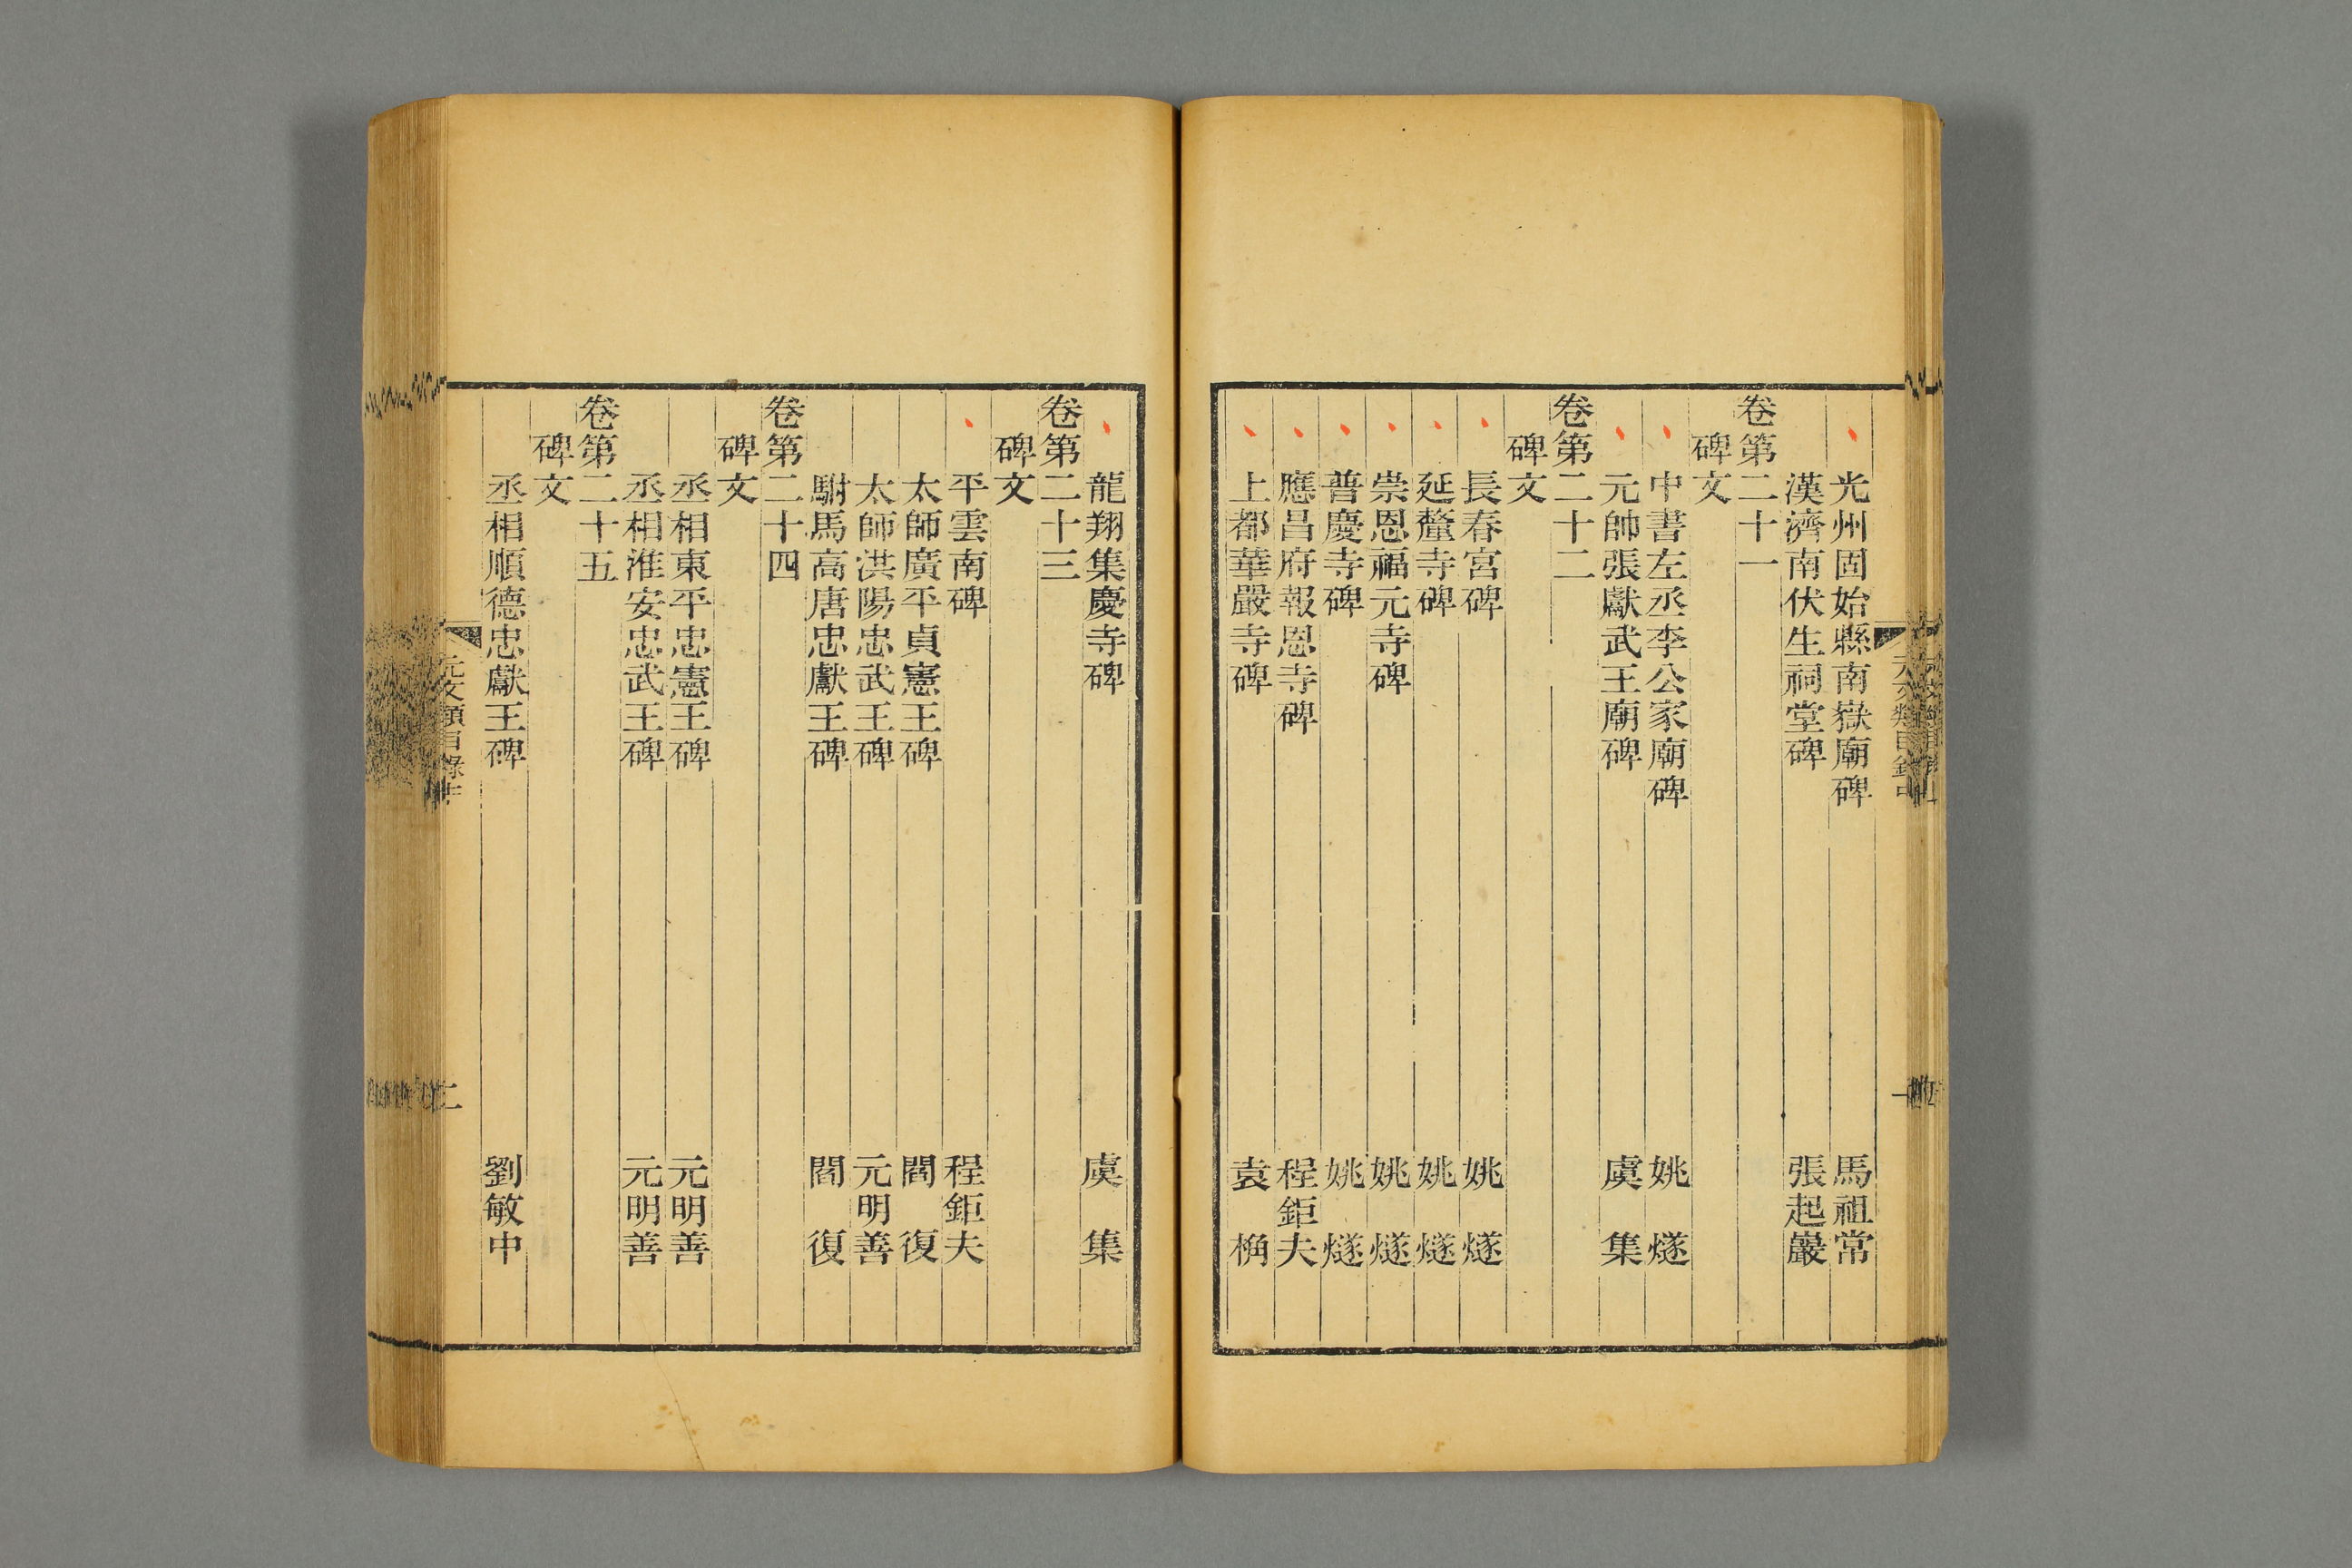 光州固始縣南嶽廟碑 馬祖常
漢濟南伏生祠堂碑 張起巖
卷第二十一
碑文
中書左丞李公家廟碑 姚燧
元帥張獻武王廟碑 虞集
卷第二十二
碑文
長春宮碑 姚燧
延釐寺碑 姚燧
崇恩福元寺碑 姚燧
普慶寺碑 姚燧
應昌府報恩寺碑 程鉅夫
上都華嚴寺碑 袁桷
龍翔集慶寺碑 虞集
卷第二十三
碑文
平雲南碑 程鉅夫
太師廣平貞憲王碑 閻復
太師淇陽忠武王碑 元明善
駙馬高唐忠獻王碑 閻復
卷第二十四
碑文
丞相東平忠憲王碑 元明善
丞相淮安忠武王碑 元明善
卷第二十五
碑文
丞相順德忠獻王碑 劉敏中
元文類目錄